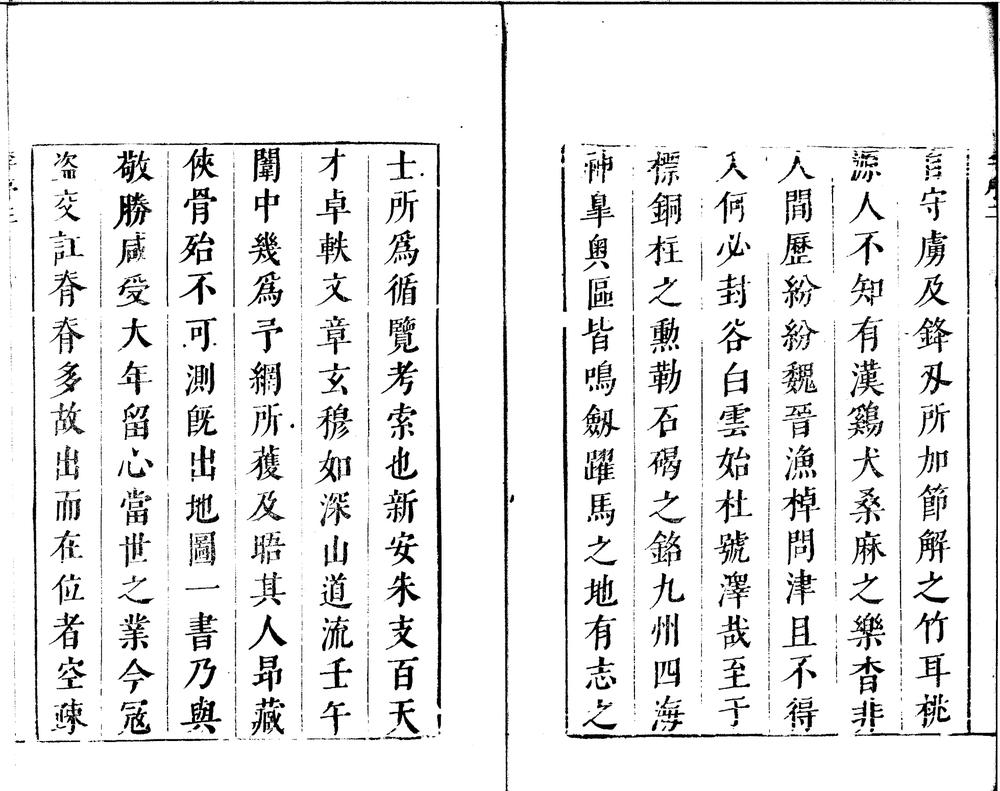 言守虜及鋒刃所加節解之竹耳桃
源人不知有漢鷄犬桑麻之樂杳非
人間歷紛紛魏晉漁棹問津且不得
入何必封谷白雲始杜號澤哉至于
標銅柱之勳勒石碣之銘九州四海
神臯奧區皆鳴劔躍馬之地有志之
士所爲循覽考索也新安朱支百天
才卓軼文章玄穆如深山道流壬午
闈中幾爲予網所獲及晤其人昻藏
俠骨殆不可測旣出地圖一書乃與
敬勝咸受大年留心當世之業今冦
盗交訌脊脊多故出而在位者空踈